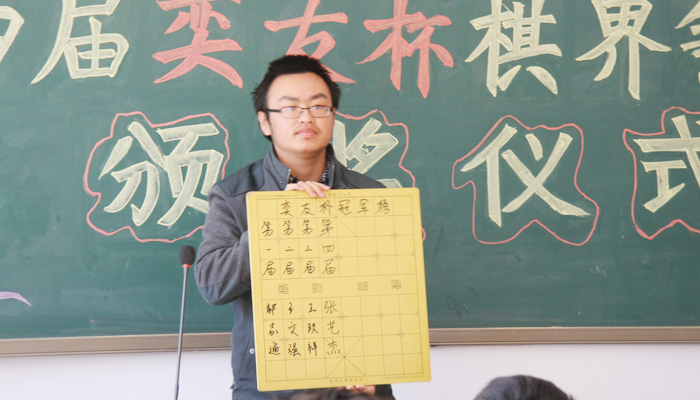 届奕友杯棋界
颁奖仪式
奕友杯冠军榜
第第第第
一二三四
届届届届
王王张
文艺
通强祥杰